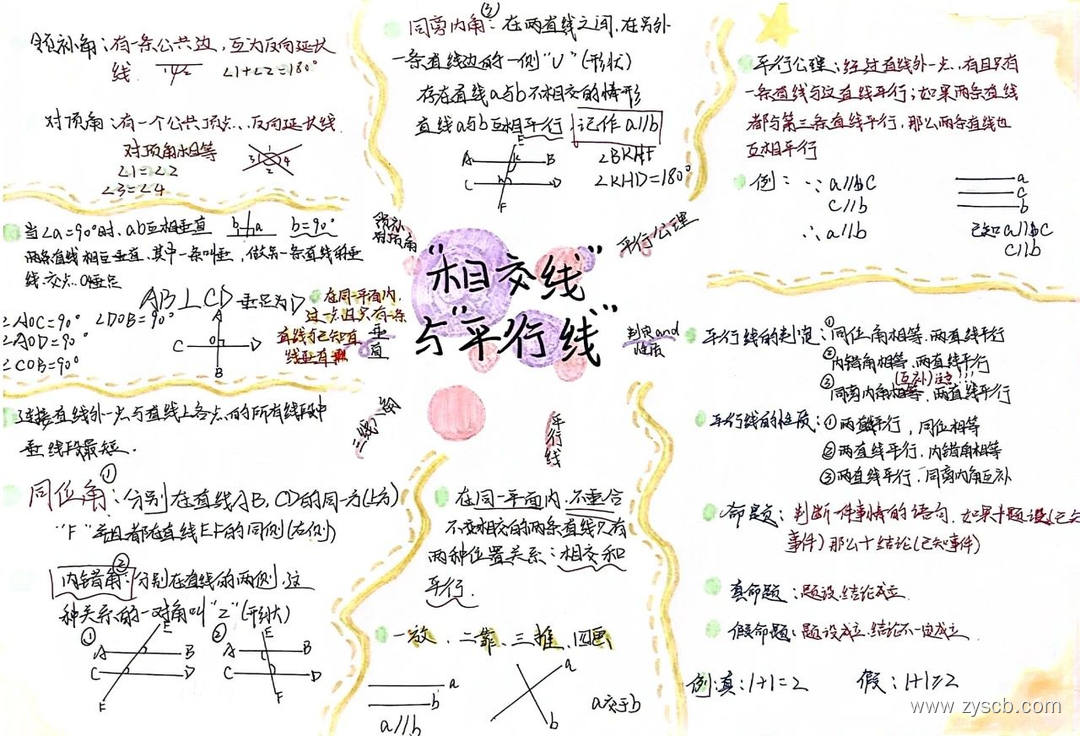 邻补角：有一条公共边，互为反向延长
线. ∠1+∠2=180°
对顶角：有一个公共顶点，反向延长线.
对顶角相等
∠1=∠2
∠3=∠4
1
3 4
2
当∠a=90°时，ab互相垂直 b a b=90°
两条直线相互垂直，其中一条叫垂，做另一条直线的垂
线.交点.O垂足
AB⊥CD垂足为O
∠AOC=90° ∠DOB=90°
∠AOD=90°
∠COB=90°
A
C O D
B
在同一平面内，
过一点且只有一条
直线与已知直
线垂直
垂直
连接直线外一点与直线上各点的所有线段中
垂线段最短.
①
同位角：分别在直线AB，CD的同一方(上方)
"F" 并且都在直线EF的同侧(右侧)
②
内错角：分别在直线的两侧，这
种关系的一对角叫"Z"(形状)
① E ② E
A B A B
C D C D
F F
③
同旁内角：在两直线之间，在另外
一条直线边的一侧"U"(形状)
存在直线a与b不相交的情形
直线a与b互相平行 记作a//b
E
A K B
C H D
F
∠BKH
∠KHD=180°
邻补
对顶角
平行公理
"相交线"
与"平行线"
判定and
性质
三线八角
平行线
在同一平面内，不重合
两种位置关系：相交和
平行.
一放、二靠、三推、四画
a
b
a//b
a
b
a交于b
平行公理：经过直线外一点，有且只有
一条直线与这直线平行；如果两条直线
都与第三条直线平行，那么两条直线也
互相平行
例：∵a//bC
C//b
∴a//b
a
c
b
已知a//bC
C//b
平行线的判定：①同位角相等，两直线平行
②内错角相等，两直线平行
(互补)注意!!!
③同旁内角相等，两直线平行
平行线的性质：①两直线平行，同位相等
②两直线平行，内错角相等
③两直线平行，同旁内角互补
命题：判断一件事情的语句，如果+题设(已知
事件)那么+结论(已知事件)
真命题：题设，结论成立.
假命题：题设成立，结论不一定成立.
例：真：1+1=2 假：1+1≠2
www.zyscb.com